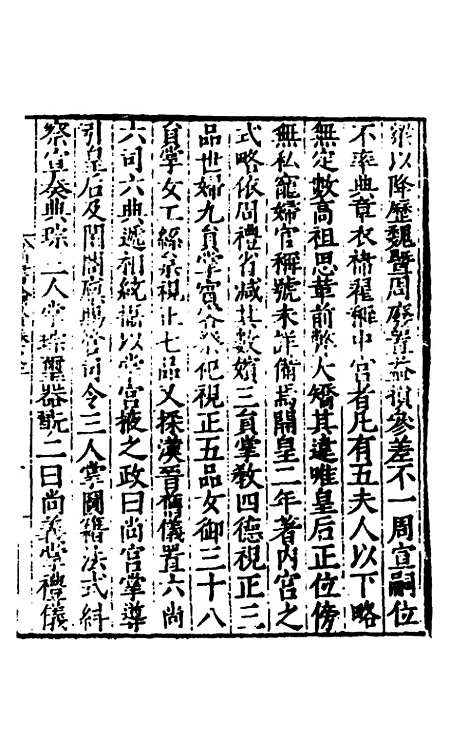 梁以降歷魏暨周廢置益損參差不一周宣嗣位
不率典章衣褘翟雜中宮者凡有五夫人以下略
無定數高祖思革前弊大矯其違唯皇后正位傍
無私寵婦官稱號未詳備焉開皇二年著內宮之
式略依周禮省減其數嬪三員掌教四德視正三
品世婦九員掌賓客祭祀視正五品女御三十八
員掌女工絲枲視正七品又採漢晉舊儀置六尚
六司六典遞相統攝以掌宮掖之政曰尚宮掌導
引皇后及閨閤廩賜宮司令三人掌圖籍法式糾
察宣奏典琮三人掌琮璽器翫二曰尚義掌禮儀